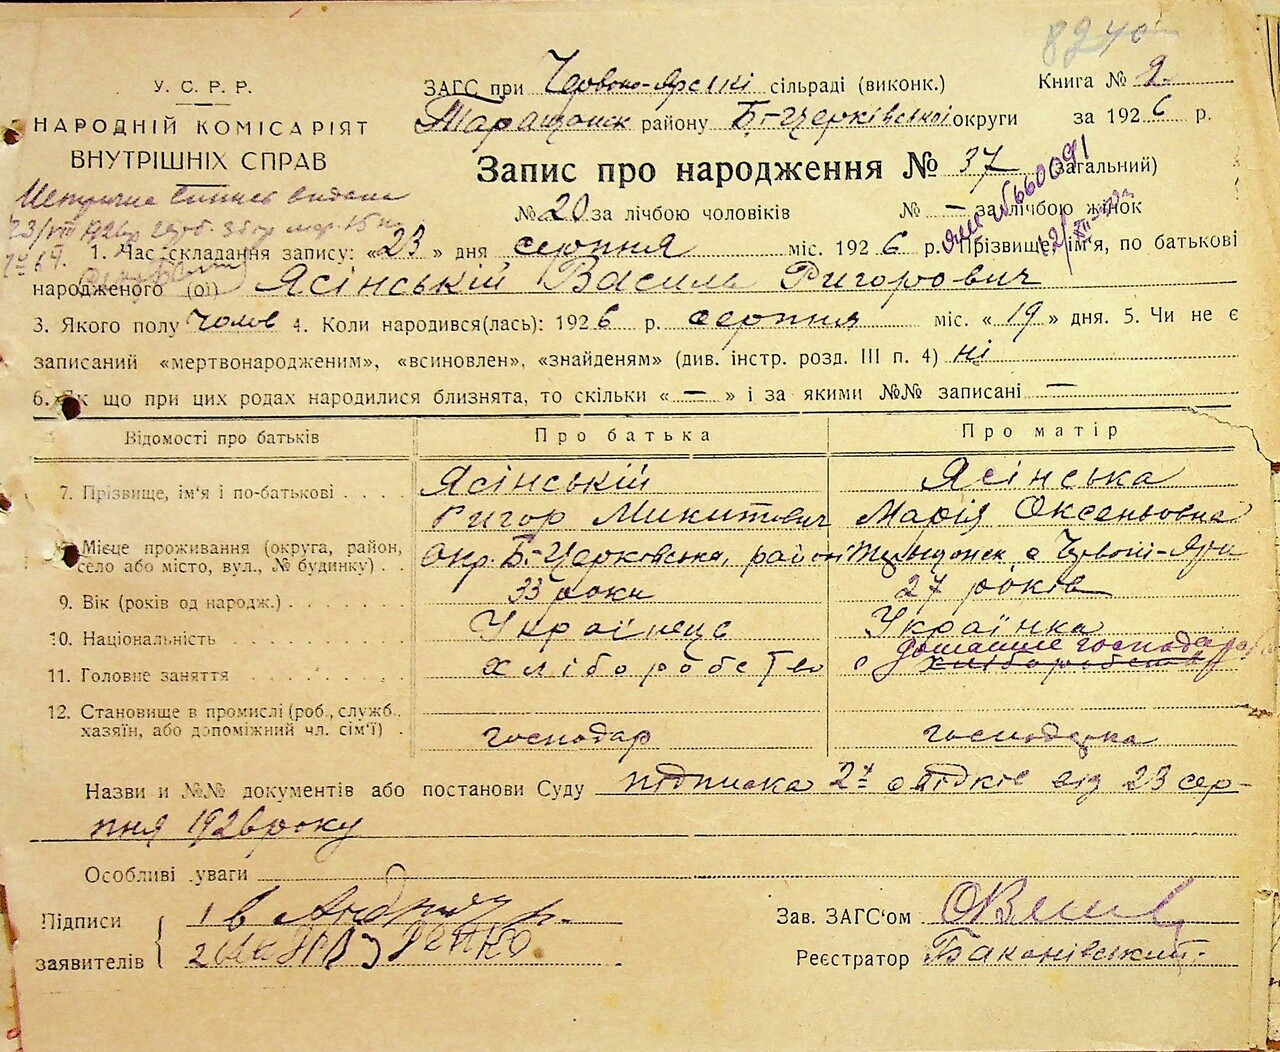 8240
У. С. Р. Р.
НАРОДНІЙ КОМІСАРІЯТ
ВНУТРІШНІХ СПРАВ
ЗАГС при Червоно-Ярській сільраді (виконк.)
Книга № 2
Таращанск району Б-Церківської округи за 1926 р.
Запис про народження № 37 (загальний)
№ 20 за лічбою чоловіків № — за лічбою жінок
Метрична випись видана
23/VIII 1926р
1. Час складання запису: «23» дня серпня міс. 1926 р. Прізвище, ім'я, по батькові
народженого (ої) Ясінській Василь Григорович
3. Якого полу Чолов 4. Коли народився(лась): 1926 р. серпня міс. «19» дня. 5. Чи не є
записаний «мертвонародженим», «всиновлен», «знайденям» (див. інстр. розд. III п. 4) ні
6. Як що при цих родах народилися близнята, то скільки «—» і за якими №№ записані —
Відомості про батьків Про батька Про матір
7. Прізвище, ім'я і по-батькові . . . . Ясінській Ясінська
Григор Микитович Марія Оксеньовна
Місце проживання (округа, район, Окр. Б-Церковська, район Таращанск, с Червоні-Яри
село або місто, вул., № будинку) . .
9. Вік (років од народж.) 33 роки 27 років
10. Національність Украінець Українка
домашнє господар
11. Головне заняття хліборобство хліборобство
12. Становище в промислі (роб., служб.,
хазяїн, або допоміжний чл. сім'ї) . господар господарка
Назви и №№ документів або постанови Суду підписка 2х свідків від 23 сер-
пня 1926 року
Особливі уваги
Підписи 1 в
заявителів 2
Зав. ЗАГС'ом
Реєстратор Баконівський.